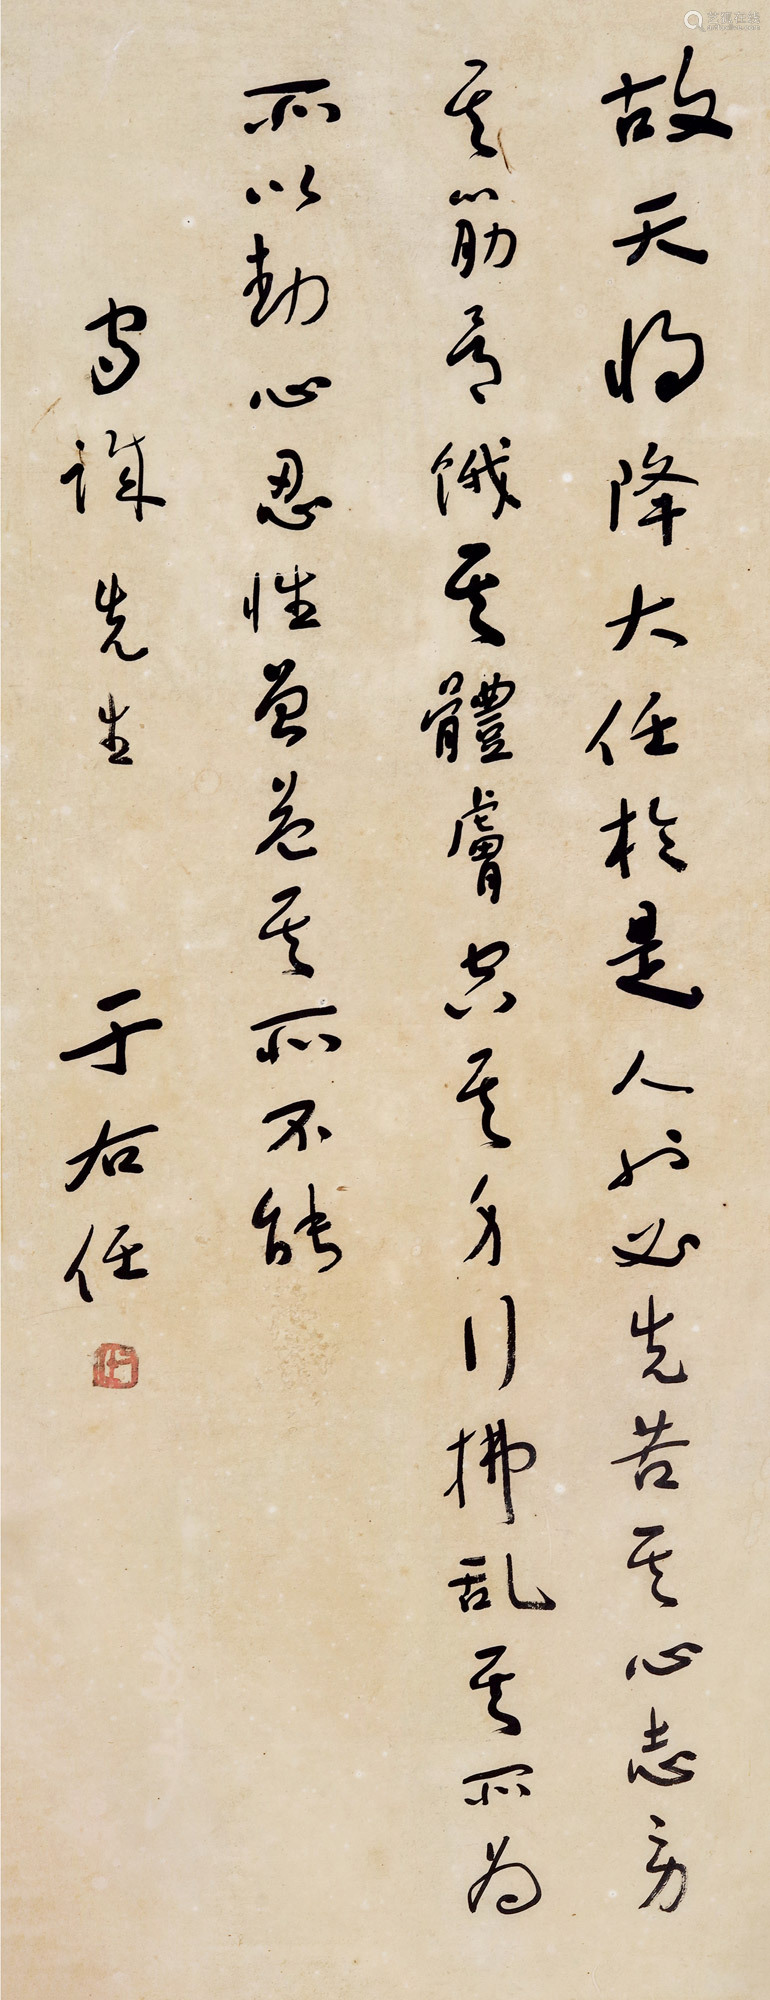 故天將降大任於是人也必先苦其心志勞
其筋骨餓其體膚空其身行拂乱其所為
所以動心忍性曾益其所不能
誠先生 于右任
艺狐在线